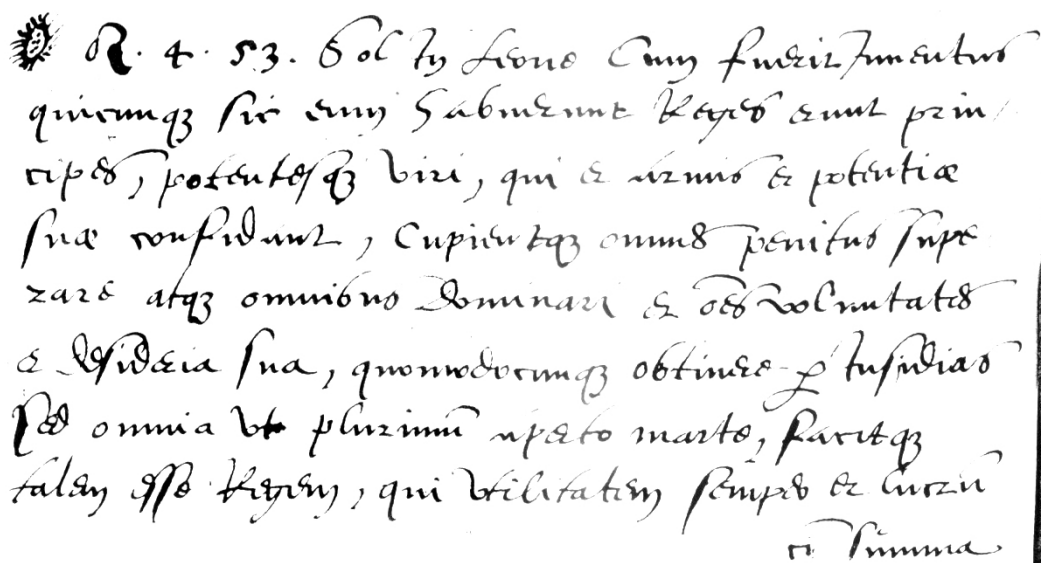 R. 4. 53. Sol in Leone Cum fuerit Inuentus
quicunqꝫ sic eum Habuerunt Reges erunt prin
cipes, potentesqꝫ viri, qui et armis et potentiæ
suæ confidant, Cupientqꝫ omnes penitus supe
rare atqꝫ omnibus Dominari et oēs voluntates
et desideria sua, quomodocunqꝫ obtinere ꝑ Insidias
sed omnia vt plurimū aperto marte, facitqꝫ
talem esse Regem, qui vtilitatem semper et lucrū
cū summa